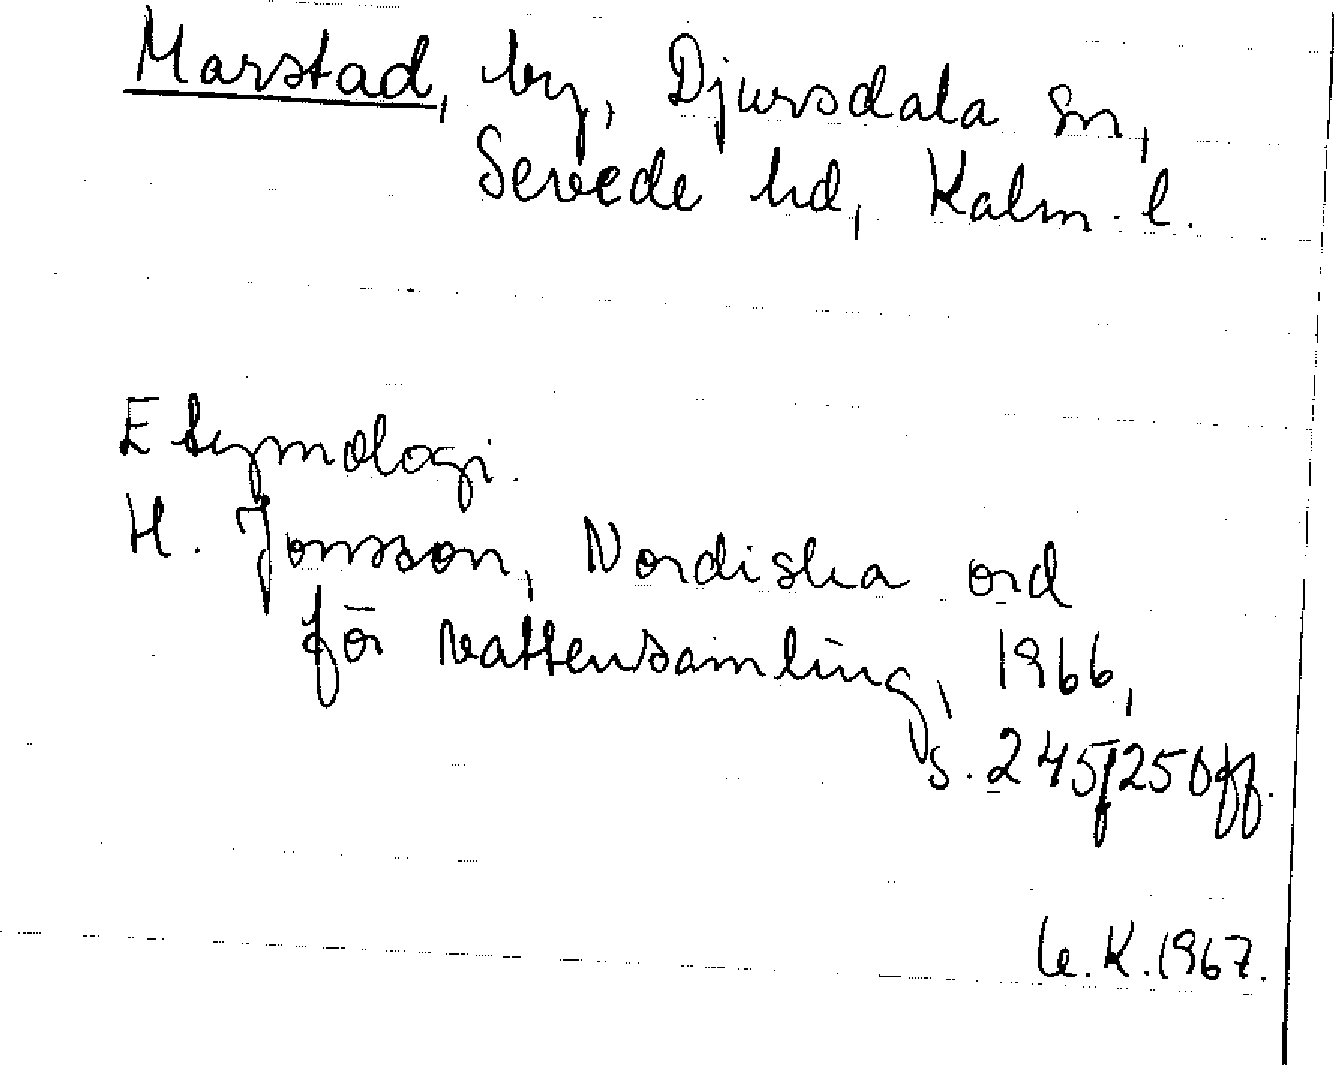 Marstad, by, Djursdala sn,
Sevede hd, Kalm. l.
Etymologi.
H. Jonsson, Nordiska ord
för vattensamling, 1966,
s. 245, 250ff.
K. 1967.